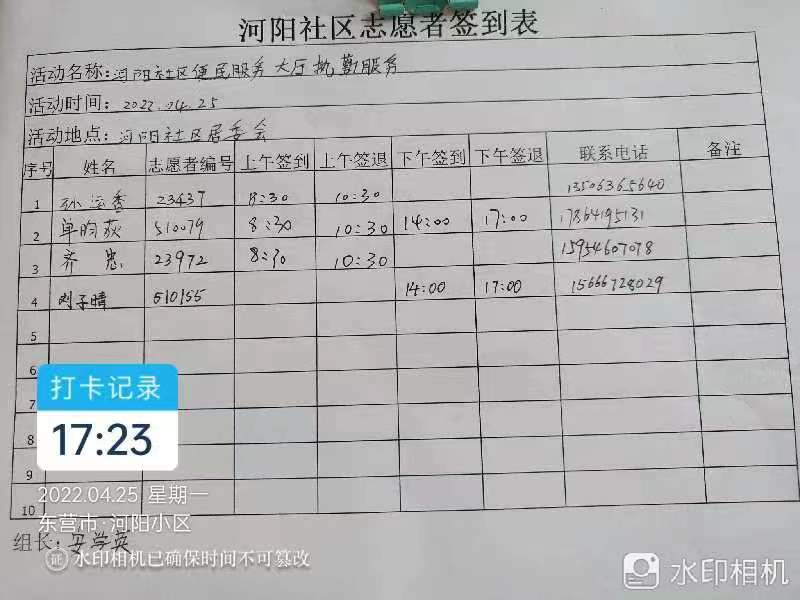 河阳社区志愿者签到表
活动名称:河阳社区便民服务大厅执勤服务
活动时间:2022.04.25
活动地点:河阳社区居委会
序号 姓名 志愿者编号 上午签到 上午签退 下午签到 下午签退 联系电话 备注
1 孙运香 23437 8:30 10:30 13506365640
2 单昀荻 510079 8:30 10:30 14:00 17:00 17864195131
3 齐忠 23972 8:30 10:30 15954607078
4 刘子晴 510155 14:00 17:00 15666728029
5
6
7
8
9
10
打卡记录
17:23
2022.04.25 星期一
东营市·河阳小区
组长:安学英
证 水印相机已确保时间不可篡改
水印相机